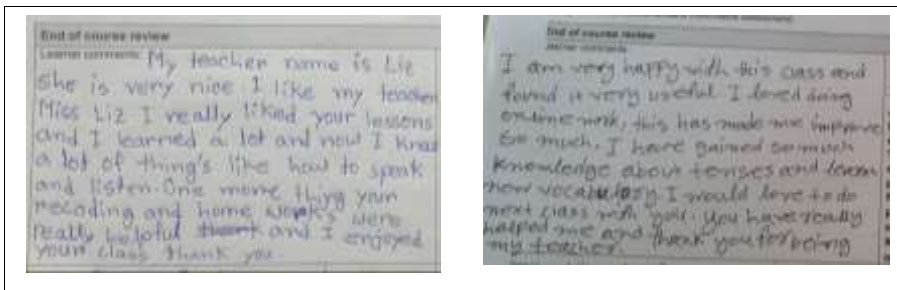 End of course review
Learner comments: My teacher name is Liz
She is very nice I like my teacher
Miss Liz I really liked your lessons
and I learned a lot and now I know
a lot of thing's like how to speak
and listen. One more thing your
recoding and home works were
really helpful thank and I enjoyed
your class thank you.
End of course review
learner comments
I am very happy with this class and
found it very useful I loved doing
online work, this has made me improve
so much. I have gained so much
knowledge about tenses and learn
new vocabulary I would love to do
next class with you. You have really
helped me and thank you for being
my teacher.